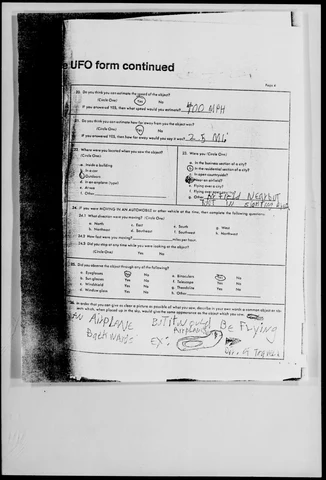 UFO form continued
Page 4
20. Do you think you can estimate the speed of the object?
(Circle One) Yes No
If you answered YES, then what speed would you estimate? 400 MPH
21. Do you think you can estimate how far away from you the object was?
(Circle One) Yes No
If you answered YES, then how far away would you say it was? 2.5 Mi
22. Where were you located when you saw the object?
(Circle One)
a. Inside a building
b. In a car
c. Outdoors
d. In an airplane (type)
e. At sea
f. Other
23. Were you (Circle One)
a. In the business section of a city?
b. In the residential section of a city?
c. In open countryside?
d. Near an airfield?
e. Flying over a city?
f. Flying over open country?
g. Other AIRFIELD NEARBUT
NOT IN
24. If you were MOVING IN AN AUTOMOBILE or other vehicle at the time, then complete the following questions:
24.1 What direction were you moving? (Circle One)
a. North
b. Northeast
c. East
d. Southeast
e. South
f. Southwest
g. West
h. Northwest
24.2 How fast were you moving? miles per hour.
24.3 Did you stop at any time while you were looking at the object?
(Circle One) Yes No
25. Did you observe the object through any of the following?
a. Eyeglasses Yes No
b. Sun glasses Yes No
c. Windshield Yes No
d. Window glass Yes No
e. Binoculars Yes No
f. Telescope Yes No
g. Theodolite Yes No
h. Other
26. In order that you can give as clear a picture as possible of what you saw, describe in your own words a common object or
objects which, when placed up in the sky, would give the same appearance as the object which you saw.
AN AIRPLANE BUT IT WOULD BE Flying
BACKWARDS EX: Airplane